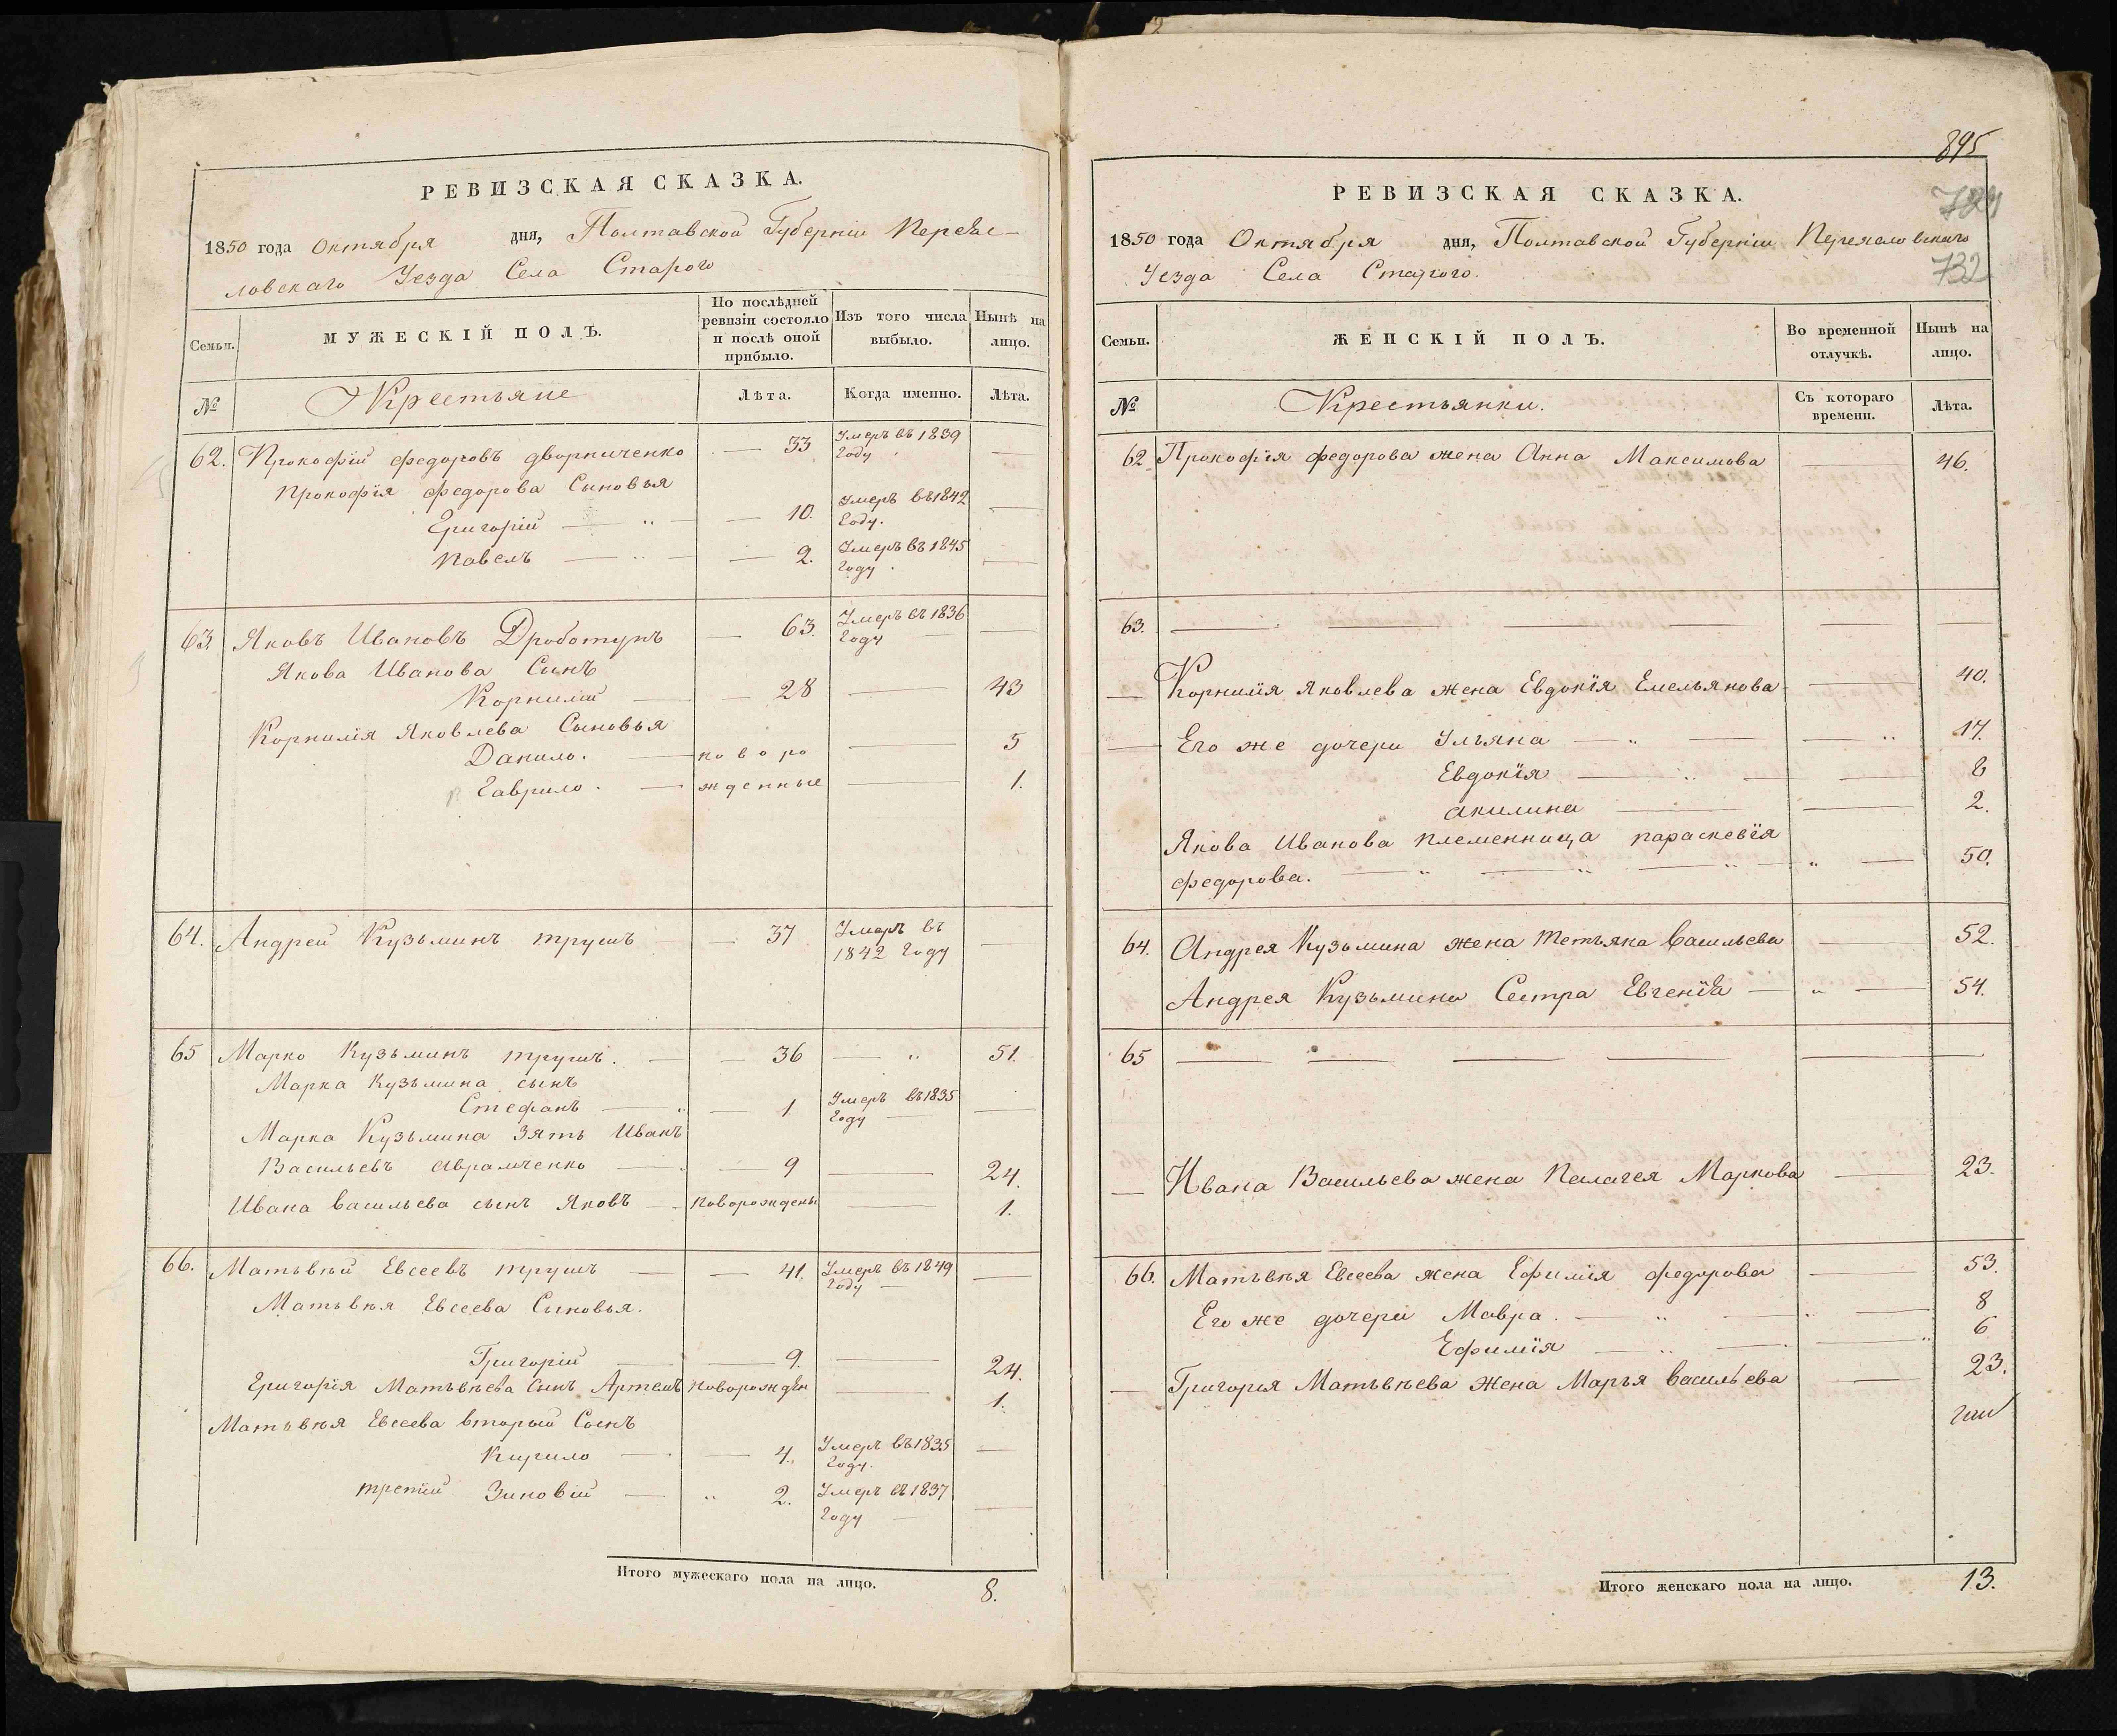 РЕВИЗСКАЯ СКАЗКА.
1850 года Октября дня, Полтавской Губерніи Переяс-
ловскаго Уезда Села Старого
Семьи.
МУЖЕСКІЙ ПОЛЪ.
По послѣдней ревизіи состояло и послѣ оной прибыло.
Изъ того числа выбыло.
Нынѣ на лицо.
№ Крестьяне Лѣта. Когда именно. Лѣта.
62. Прокофій федоровъ дворниченко 33 Умеръ въ 1839 Году
Прокофія федорова Сыновья
Григорій 10. Умеръ въ 1842 Году.
Павелъ 2. Умеръ въ 1845 Году.
63. Яковъ Ивановъ Дроботунъ 63. Умеръ въ 1836 Году
Якова Иванова Сынъ
Корнилій 28 43
Корнилія Яковлева Сыновья
Данило. новоро 5
Гаврило. жденные 1.
64. Андрей Кузьминъ трушъ 37 Умеръ въ 1842 Году
65 Марко Кузьминъ трушъ. 36 51.
Марка Кузьмина сынъ
Стефанъ 1 Умеръ въ 1835 Году
Марка Кузьмина Зять Иванъ
Васильевъ Аврамченко 9 24.
Ивана васильева сынъ Яковъ новорожденъ 1.
66. Матьвѣй Евсеевъ трушъ 41. Умеръ въ 1849 Году
Матьвѣя Евсеева Сыновья.
Григорій 9. 24.
Григорія Матьвѣева Сынъ Артемъ новорожден 1.
Матьвѣя Евсеева вторый Сынъ
Кирило 4. Умеръ въ 1835 Году.
третій Зиновій 2. Умеръ въ 1837 Году
Итого мужескаго пола на лицо. 8.
895
732
РЕВИЗСКАЯ СКАЗКА.
1850 года Октября дня, Полтавской Губерніи Переяславскаго
Уезда Села Старого.
Семьи.
ЖЕНСКІЙ ПОЛЪ.
Во временной отлучкѣ.
Нынѣ на лицо.
№ Крестьянки. Съ котораго времени. Лѣта.
62 Прокофія федорова жена Анна Максимова 46.
63.
Корнилія Яковлева жена Евдокія Емельянова 40.
Его же дочери Ульяна 17.
Евдокія 8
Акилина 2.
Якова Иванова племенница параскевія
федорова. 50.
64. Андрея Кузьмина жена Тетьяна Васильева 52.
Андрея Кузьмина Сестра Евгенія 54.
65
Ивана Васильева жена Пелагея Маркова 23.
66. Матьвѣя Евсеева жена Ефимія федорова 53.
Его же дочери Мавра. 8
Ефимія 6
Григорія Матьвѣева Жена Марья Васильева 23.
Итого женскаго пола на лицо. 13.